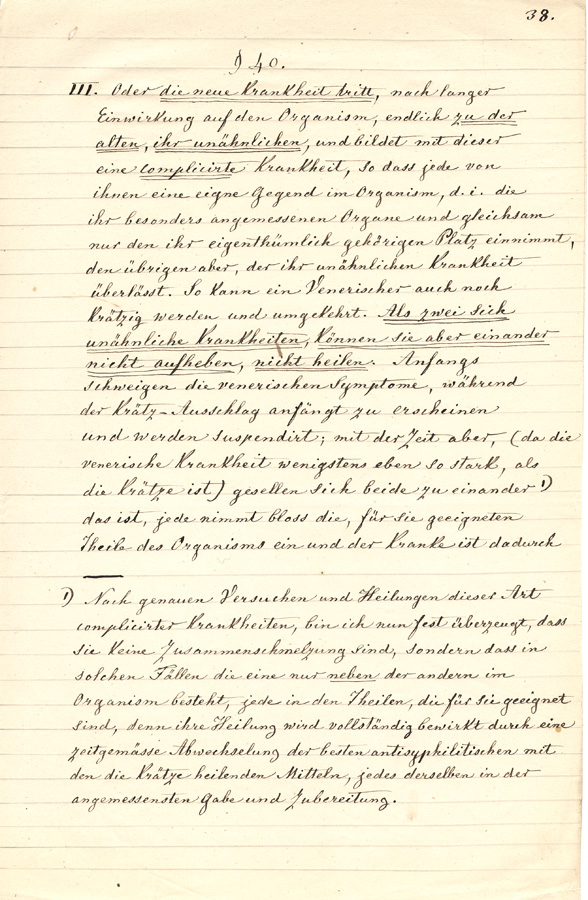 38.
§ 40.
III. Oder die neue Krankheit tritt, nach langer
Einwirkung auf den Organism, endlich zu der
alten, ihr unähnlichen, und bildet mit dieser
eine complicirte Krankheit, so dass jede von
ihnen eine eigne Gegend im Organism, d. i. die
ihr besonders angemessenen Organe und gleichsam
nur den ihr eigenthümlich gehörigen Platz einnimmt,
den übrigen aber, der ihr unähnlichen Krankheit
überlässt. So kann ein Venerischer auch noch
krätzig werden und umgekehrt. Als zwei sich
unähnliche Krankheiten, können sie aber einander
nicht aufheben, nicht heilen. Anfangs
schweigen die venerischen Symptome, während
der Krätz-Ausschlag anfängt zu erscheinen
und werden suspendirt; mit der Zeit aber, (da die
venerische Krankheit wenigstens eben so stark, als
die Krätze ist) gesellen sich beide zu einander 1)
das ist, jede nimmt bloss die, für sie geeigneten
Theile des Organisms ein und der Kranke ist dadurch
1) Nach genauen Versuchen und Heilungen dieser Art
complicirter Krankheiten, bin ich nun fest überzeugt, dass
sie keine Zusammenschmelzung sind, sondern dass in
solchen Fällen die eine nur neben der andern im
Organism besteht, jede in den Theilen, die für sie geeignet
sind, denn ihre Heilung wird vollständig bewirkt durch eine
zeitgemässe Abwechselung der besten antisyphilitischen mit
den die Krätze heilenden Mitteln, jedes derselben in der
angemessensten Gabe und Zubereitung.